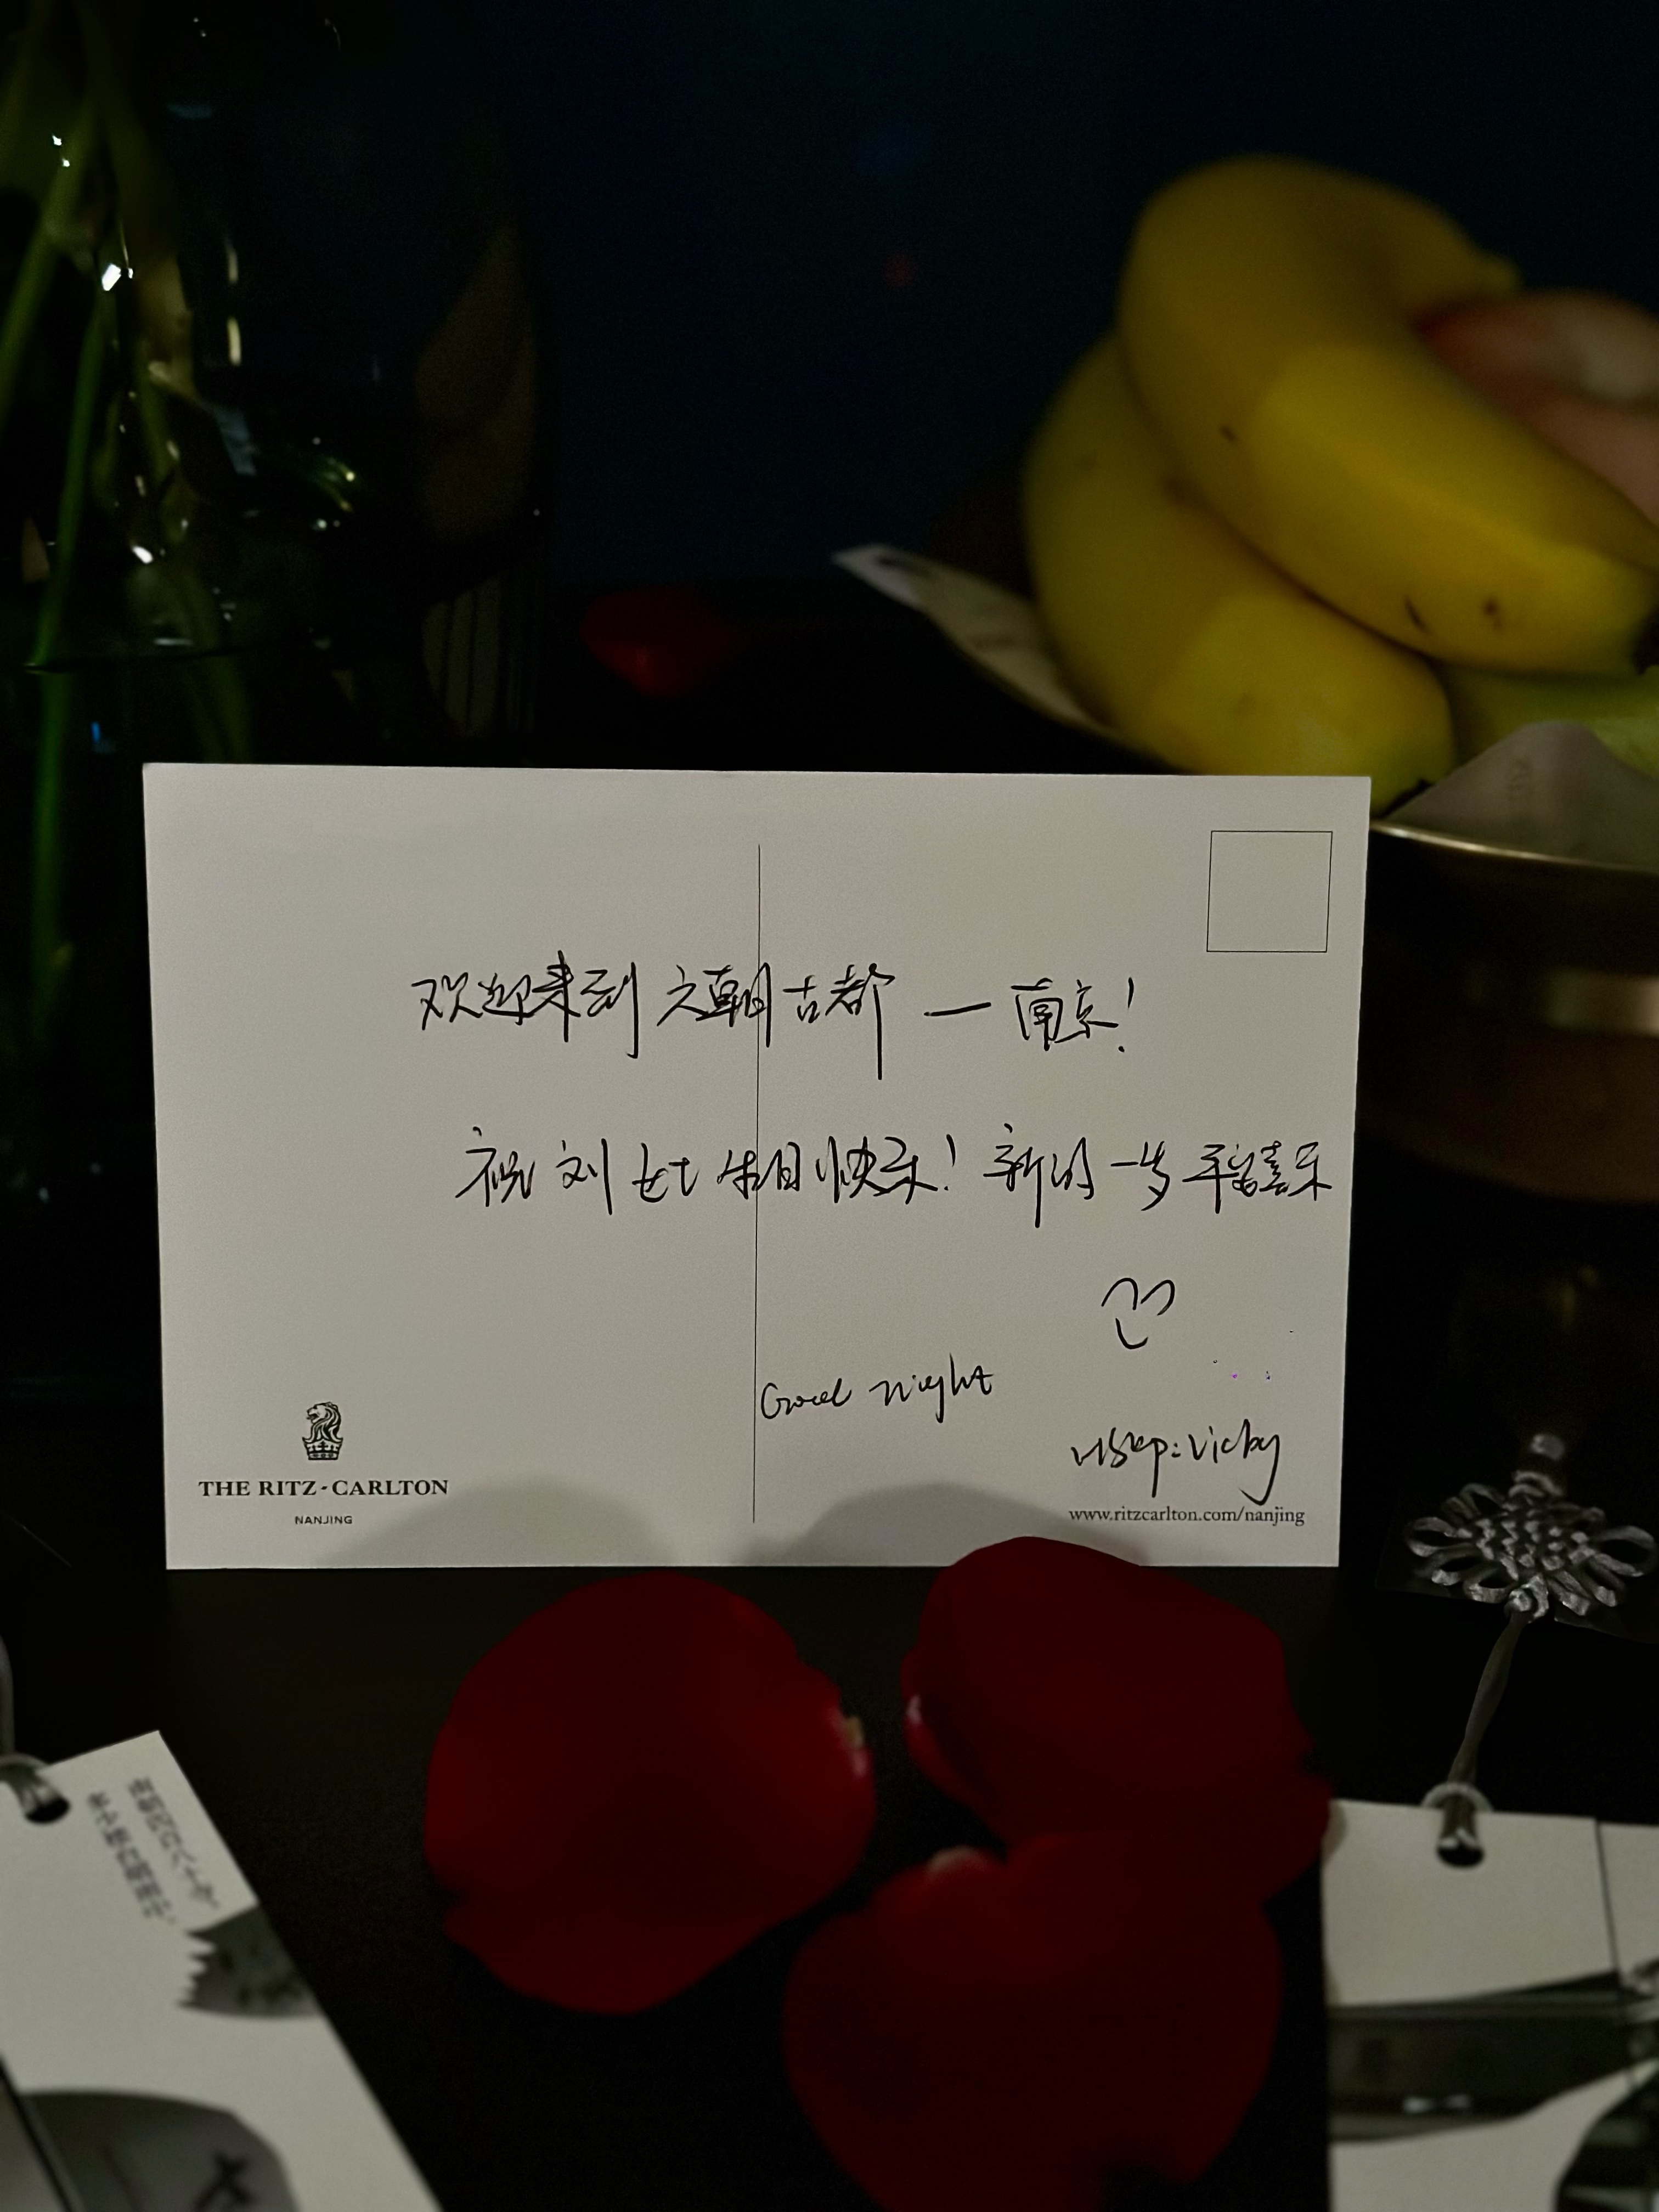 欢迎来到六朝古都 — 南京!
祝刘女士生日快乐! 新的一岁平安喜乐
Good night
Vicky
THE RITZ-CARLTON
NANJING
www.ritzcarlton.com/nanjing